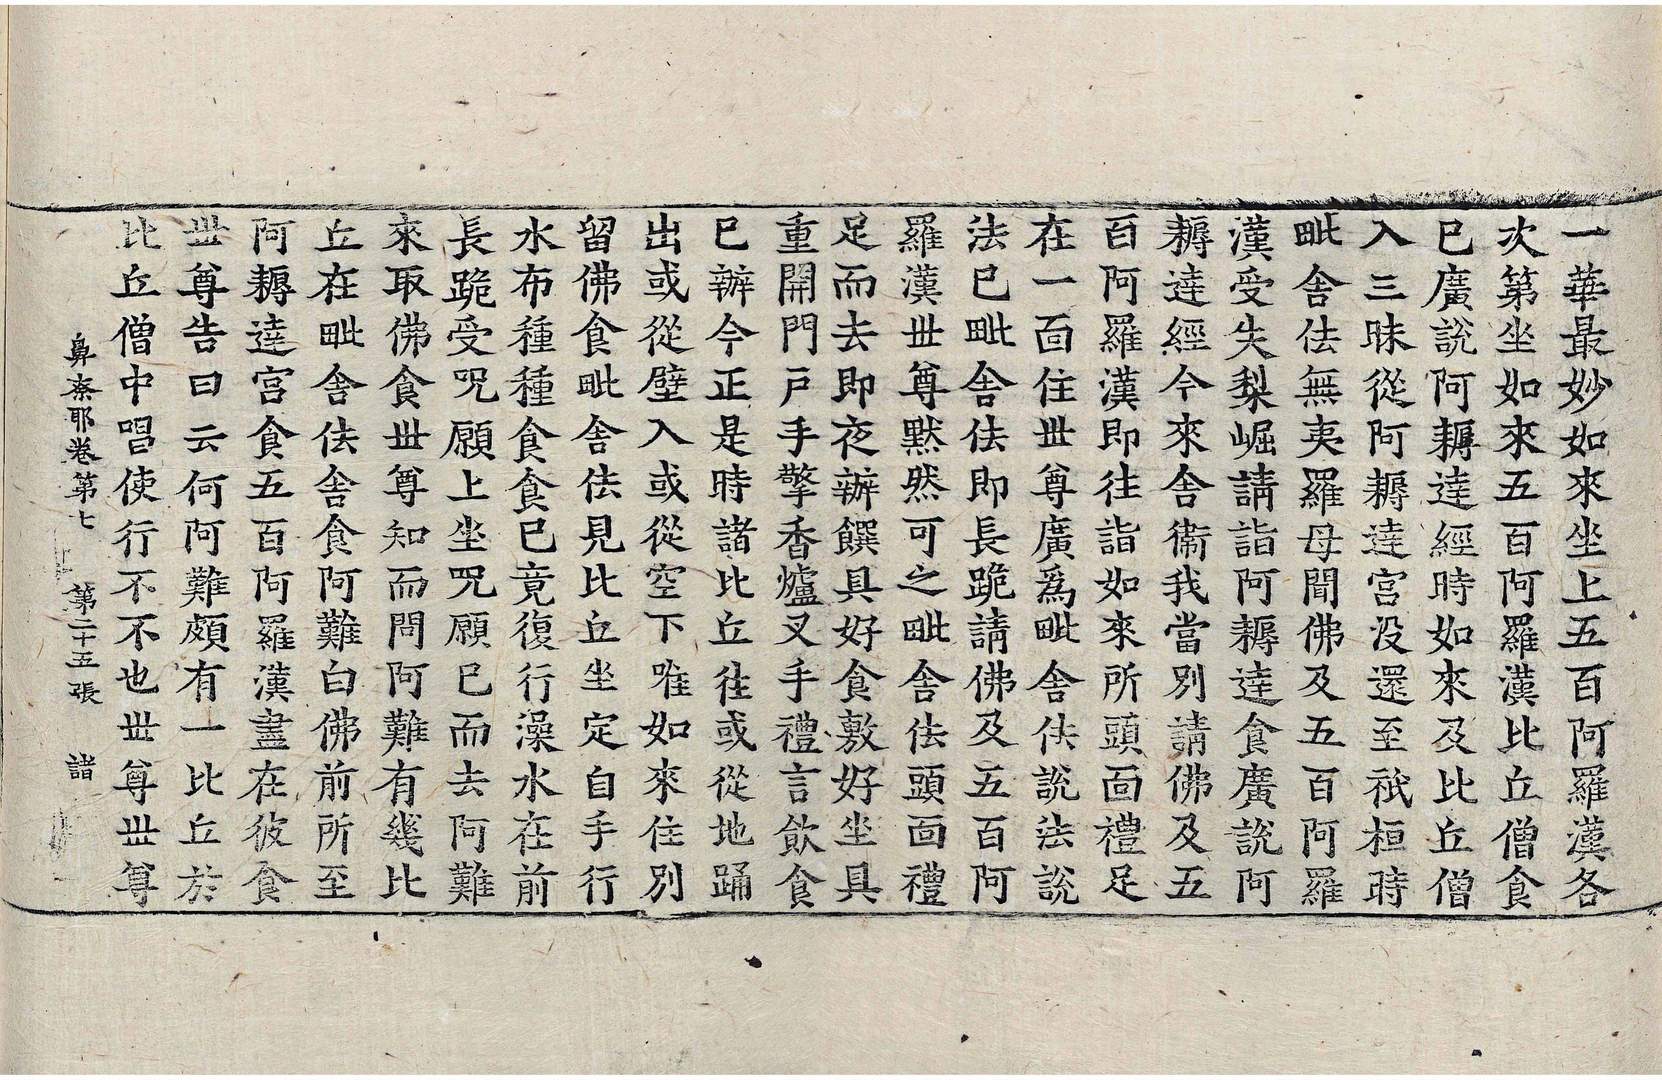 一華最妙如來坐上五百阿羅漢各
次第坐如來五百阿羅漢比丘僧食
已廣說阿耨達經時如來及比丘僧
入三昧從阿耨達宮没還至祇桓時
毗舍佉無夷羅母聞佛及五百阿羅
漢受失梨崛請詣阿耨達食廣說阿
耨達經今來舍衛我當別請佛及五
百阿羅漢即往詣如來所頭面禮足
在一面住世尊廣爲毗舍佉說法說
法已毗舍佉即長跪請佛及五百阿
羅漢世尊黙然可之毗舍佉頭面禮
足而去即夜辦饌具好食敷好坐具
重開門戸手擎香爐叉手禮言飲食
已辦今正是時諸比丘往或從地踊
出或從壁入或從空下唯如來住別
留佛食毗舍佉見比丘坐定自手行
水布種種食食已竟復行澡水在前
長跪受呪願上坐呪願已而去阿難
來取佛食世尊知而問阿難有幾比
丘在毗舍佉舍食阿難白佛前所至
阿耨達宮食五百阿羅漢盡在彼食
世尊告曰云何阿難頗有一比丘於
比丘僧中唱使行不不也世尊世尊
鼻奈耶卷第七　第二十五張　諸